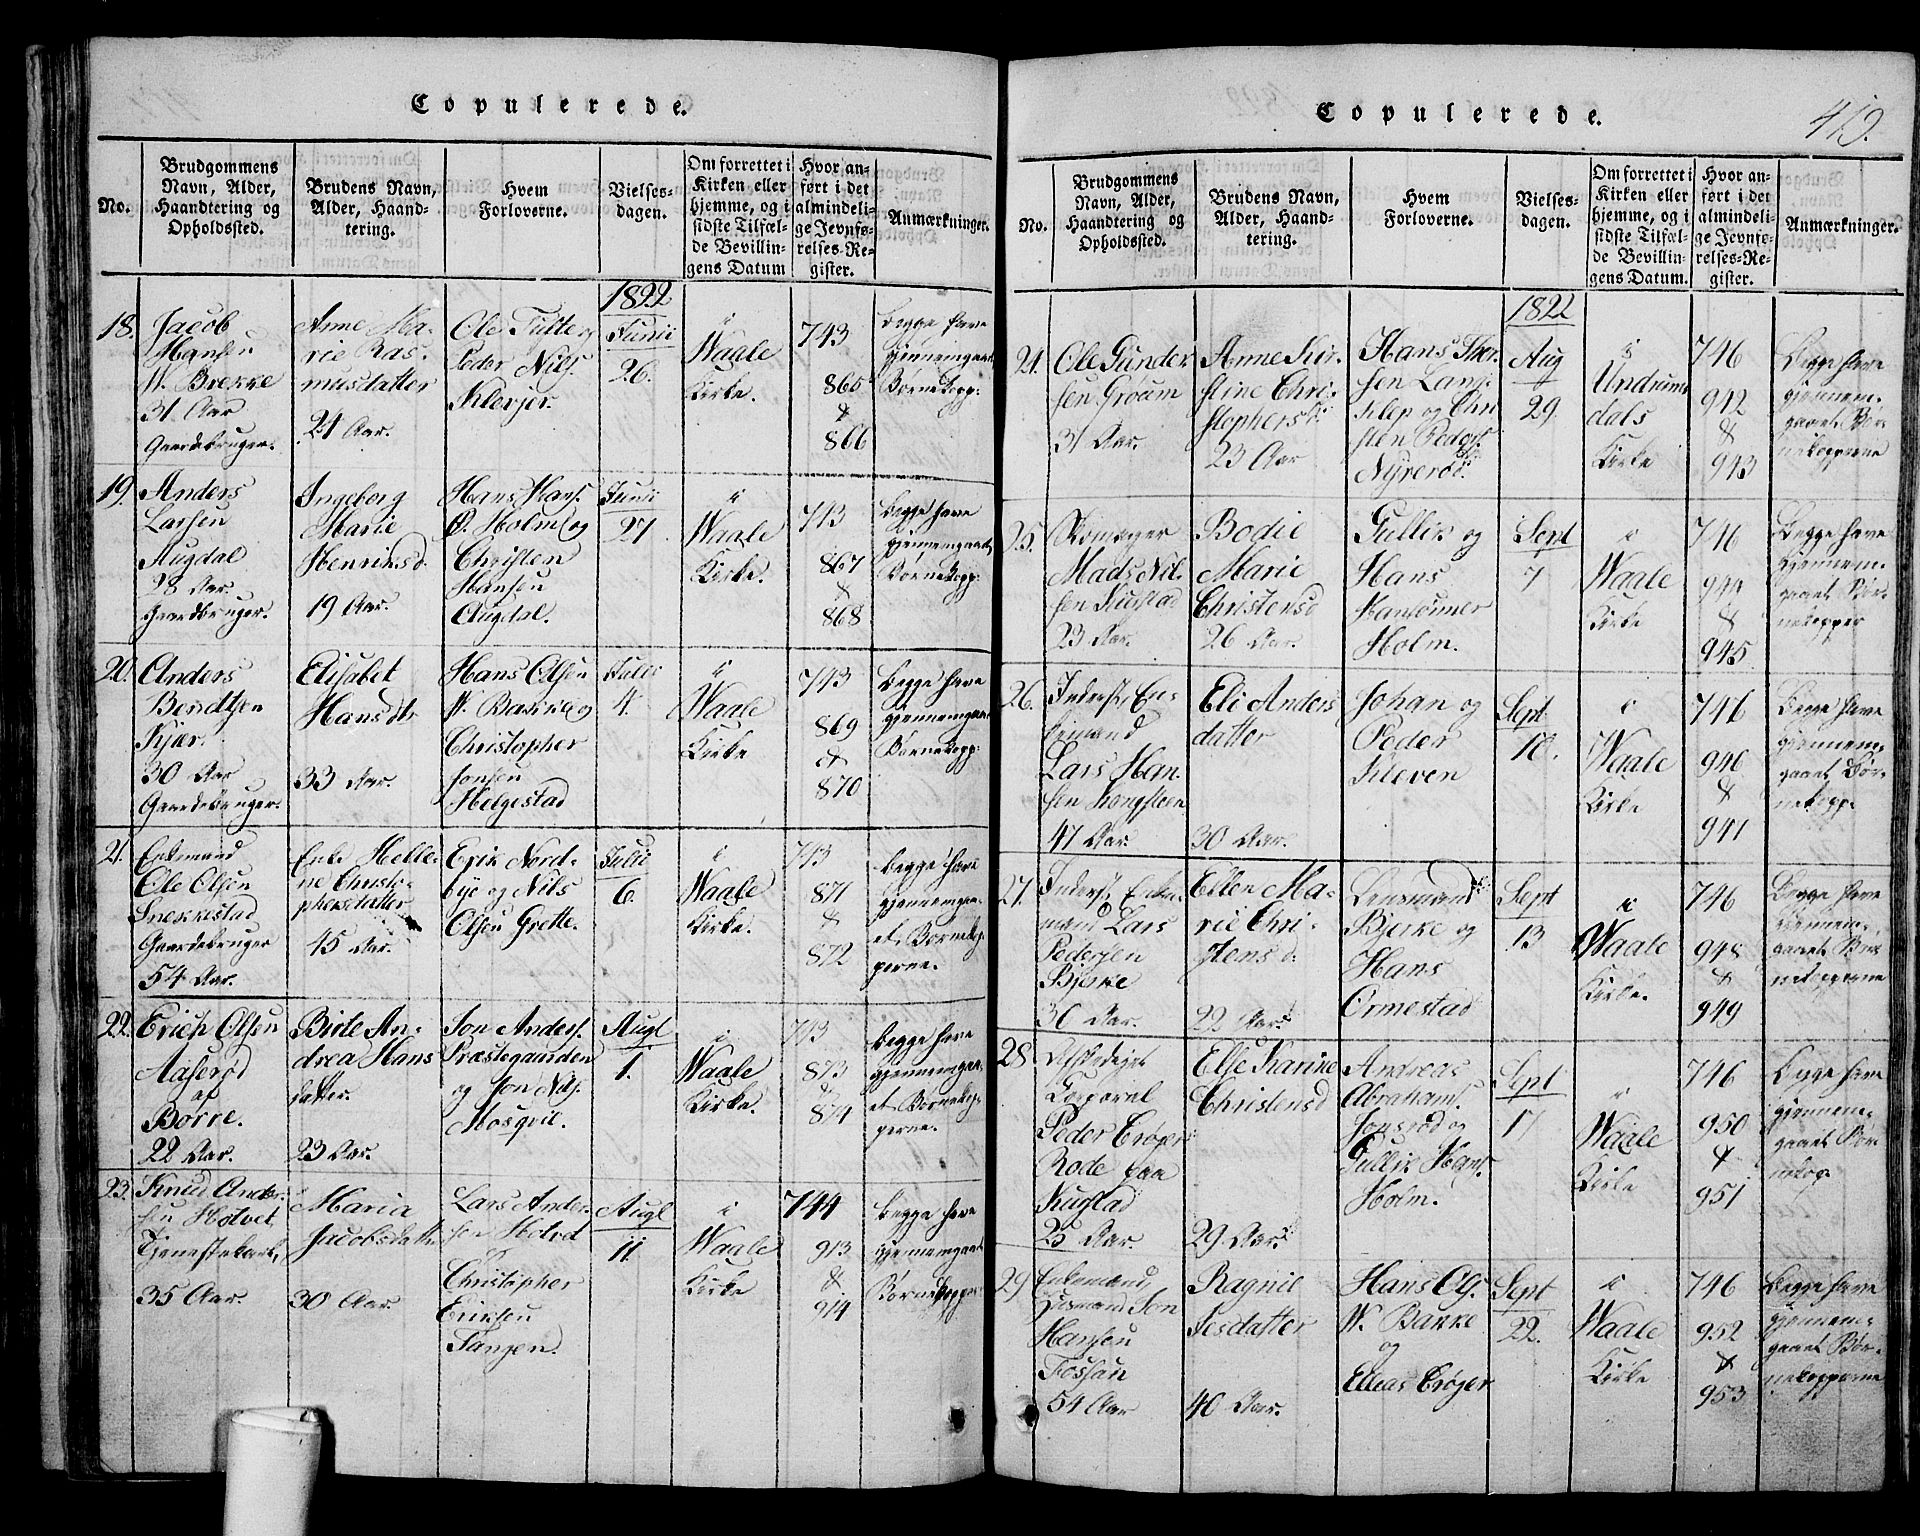 Copulerede.
No.
Brudgommens
Navn, Alder,
Haandtering og
Opholdssted.
Brudens Navn,
Alder, Haand-
tering.
Hvem
Forloverne.
Vielses-
dagen.
Om forrettet i
Kirken eller
hjemme, og i
sidste Tilfæl-
de Bevillin-
gens Datum
Hvor an-
ført i det
almindeli-
ge Jevnfø-
relses-Re-
gister.
Anmærkninger.
1822
18.
Jacob
Hansen
W. Brekke
31 Aar
Gaardebruger.
Anne Ma-
rie Ras-
musdatter
24 Aar.
Ole Tufte og
Peder Nils.
Klevjer.
Junii
26.
i
Waale
Kirke.
743
865
&
866
Begge have
gjennemgaaet
Børnekopp:
19.
Anders
Larsen
Augdal
28 Aar.
Gaardbruger.
Ingeborg
Marie
Henriksd.
19 Aar.
Hans Hans.
Ø. Holm og
Christen
Hansen
Augdal.
Junii
27.
i
Waale
Kirke.
743
867
&
868
Begge have
gjennemgaaet
Børnekopp:
20.
Anders
Berndtsen
Kjær.
30 Aar
Gaardebruger.
Elisabet
Hansdt.
33 Aar.
Hans Olsen
W. Bakke og
Christopher
Jonsen
Helgestad
Julii
4.
i
Waale
Kirke
743
869
&
870
Begge have
gjennemgaaet
Børnekopp:
21.
Enkemand
Ole Olsen
Snekkestad
Gaardebruger
54 Aar.
Enke Helle-
ne Christo-
phersdatter
45 Aar.
Erik Nord-
bye og Nils
Olsen Grette.
Julii
6.
i
Waale
Kirke.
743
871
&
872
Begge have
gjennemgaa-
et Børnekop-
perne.
22.
Erich Olsen
Aaserød
af
Borre.
22 Aar.
Birte An-
drea Hans
datter.
23 Aar.
Jon Anders.
Præstegaarden
og Jon Nils.
Mosqvil.
Augt
1.
i
Waale
Kirke.
743
873
&
874
Begge have
gjennemgaa-
et Børnekop-
perne.
23.
Knud Ander-
sen Holvet
Tjenestekarl,
35 Aar.
Maria
Jacobsdatt.
30 Aar.
Lars Ander-
sen Holvet
&
Christopher
Eriksen
Tangen.
Augt
11.
i
Waale
Kirke
744
913
&
914
Begge have
gjennemgaaet
Børnekopper
Copulerede.
419.
No.
Brudgommens
Navn, Alder,
Haandtering og
Opholdssted.
Brudens Navn,
Alder, Haand-
tering.
Hvem
Forloverne.
Vielses-
dagen.
Om forrettet i
Kirken eller
hjemme, og i
sidste Tilfæl-
de Bevillin-
gens Datum.
Hvor an-
ført i det
almindeli-
ge Jevnfø-
relses-Re-
gister.
Anmærkninger.
1822
24.
Ole Gunder
sen Grøum
31 Aar.
Anne Kir-
stine Chri-
stophersd:
23 Aar
Hans Thor-
sen Lang-
Klep og Chri
sten Peders.
Nyrerød.
Aug
29
i
Undrums
dals
Kirke
746
942
&
943
Begge have
gjennem-
gaaet Bør-
nekopperne
25.
Mads Nil-
sen
23 Aar.
Bodil
Marie
Christensd
26 Aar.
Gullik og
Hans
Hansønner
Holm.
Sept
7
i
Waale
Kirke
746
944
&
945
Begge have
gjennem-
gaaet Bør-
nekopper
26.
Inderst, En-
kemand
Lars Han-
sen Kongsteen
47 Aar.
Eli Anders
datter
30 Aar.
Johan og
Peder
Kleven
Sept
10.
i
Waale
Kirke
746
946
&
947
Begge have
gjennem-
gaaet Bør-
nekopp.
27.
Inderst, Enke-
mand Lars
Pedersen
Bjerke
30 Aar.
Ellen Ma-
rie Chri-
stens d.
22 Aar.
Lensmand
Bjerke og
Hans
Ormestad
Sept
13
i
Waale
Kirke.
746
948
&
949
Begge have
gjennem-
gaaet Bør
nekopperne
28.
Afskediget
Corporal
Peder Crøger
Rode paa
25 Aar.
Else Karine
Christensd
29 Aar.
Andreas
Abrahams.
og
Gullik Hans.
Holm.
Sept
17
i
Waale
Kirke
746
950
&
951
Begge have
gjennem-
gaaet Bør
nekop.
29
Enkemand,
Husmand Jon
Hansen
Fossan
54 Aar
Ragnil
Jesdatter
40 Aar.
Hans Ols.
W. Bakke
og
Elleas Crøger
Sept
22.
i
Waale
Kirke
746
952
&
953
Begge have
gjennem-
gaaet Bør-
nekopperne